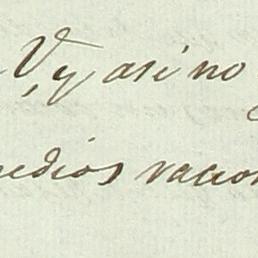 V, y asi no
medios racion